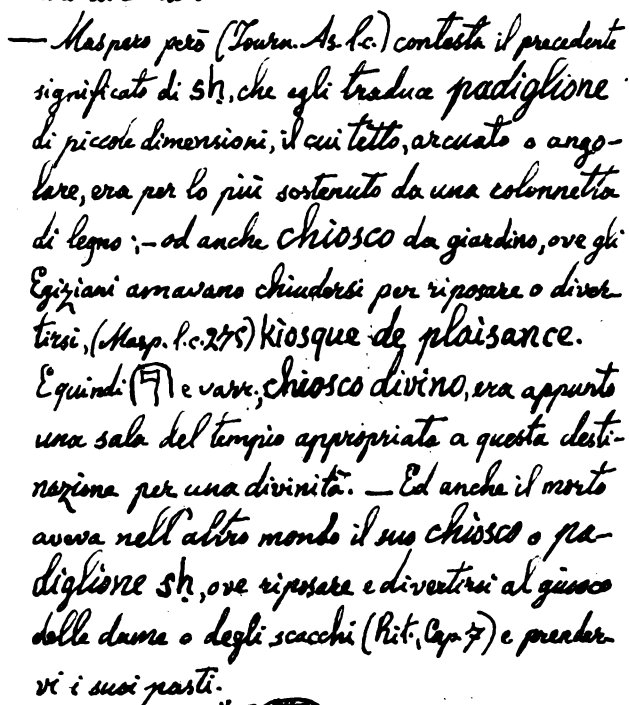 — Maspero però (Journ. As. l.c.) contesta il precedente
significato di sḥ, che egli traduce padiglione
di piccole dimensioni, il cui tetto, arcuato o ango-
lare, era per lo più sostenuto da una colonnetta
di legno; – od anche chiosco da giardino, ove gli
Egiziani amavano chiudersi per riposare o diver-
tirsi, (Masp. l.c. 275) kiosque de plaisance.
E quindi e varr., chiosco divino, era appunto
una sala del tempio appropriata a questa desti-
nazione per una divinità. — Ed anche il morto
aveva nell'altro mondo il suo chiosco o pa-
diglione sḥ, ove riposare e divertirsi al giuoco
delle dame o degli scacchi (Rit., Cap. 7) e prender-
vi i suoi pasti.